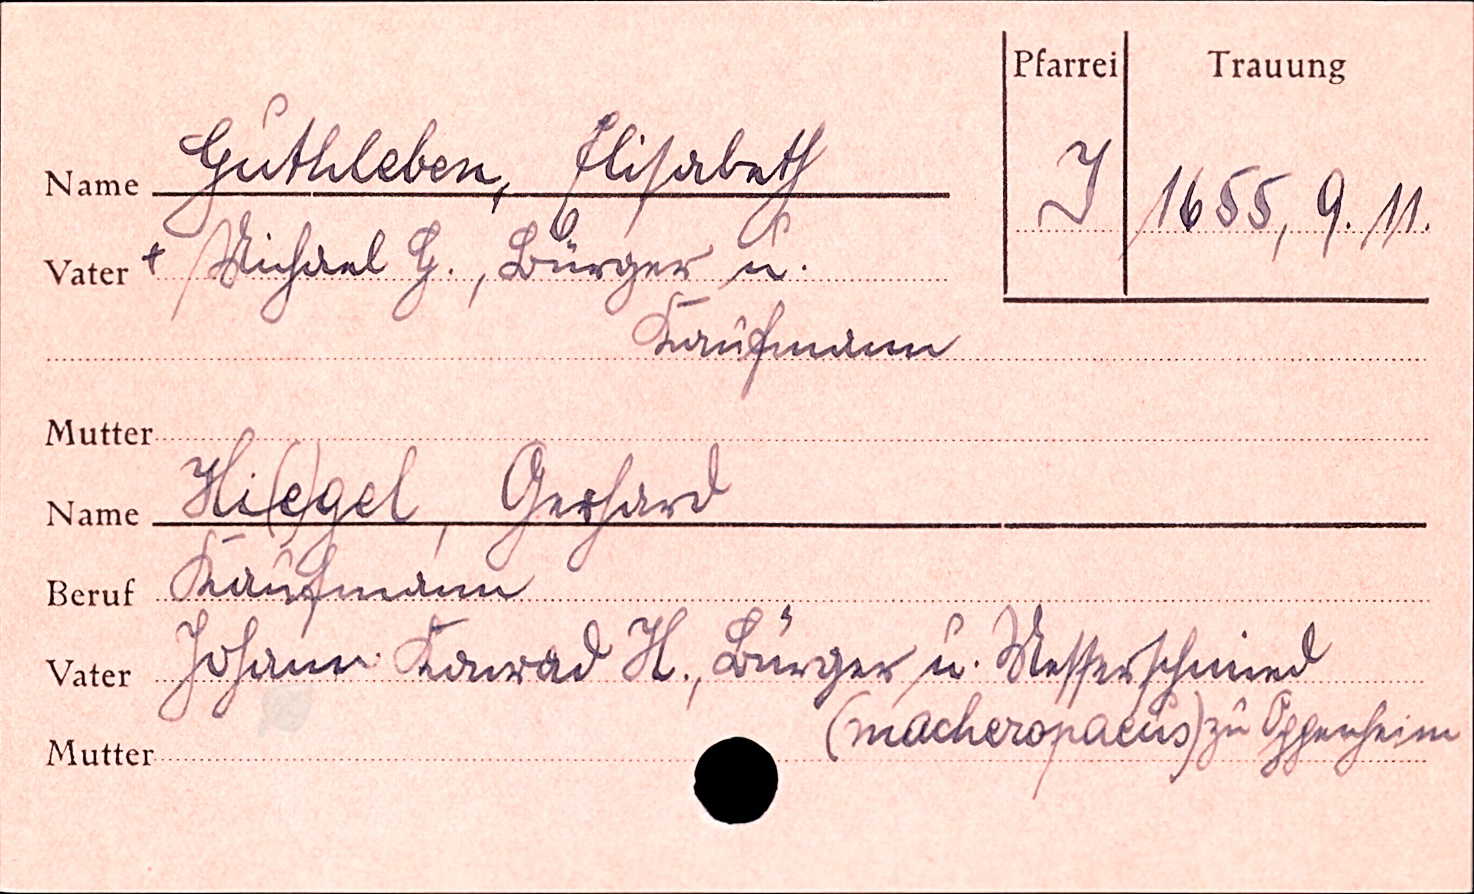 Pfarrei Trauung
Name Guthleben, Elisabeth J 1655, 9. 11.
Vater + Michael G., Bürger u.
Kaufmann
Mutter
Name Hi(e)gel, Gerhard
Beruf Kaufmann
Vater Johann Konrad H., Bürger u. Messerschmied
(macheropaeus) zu Oppenheim
Mutter